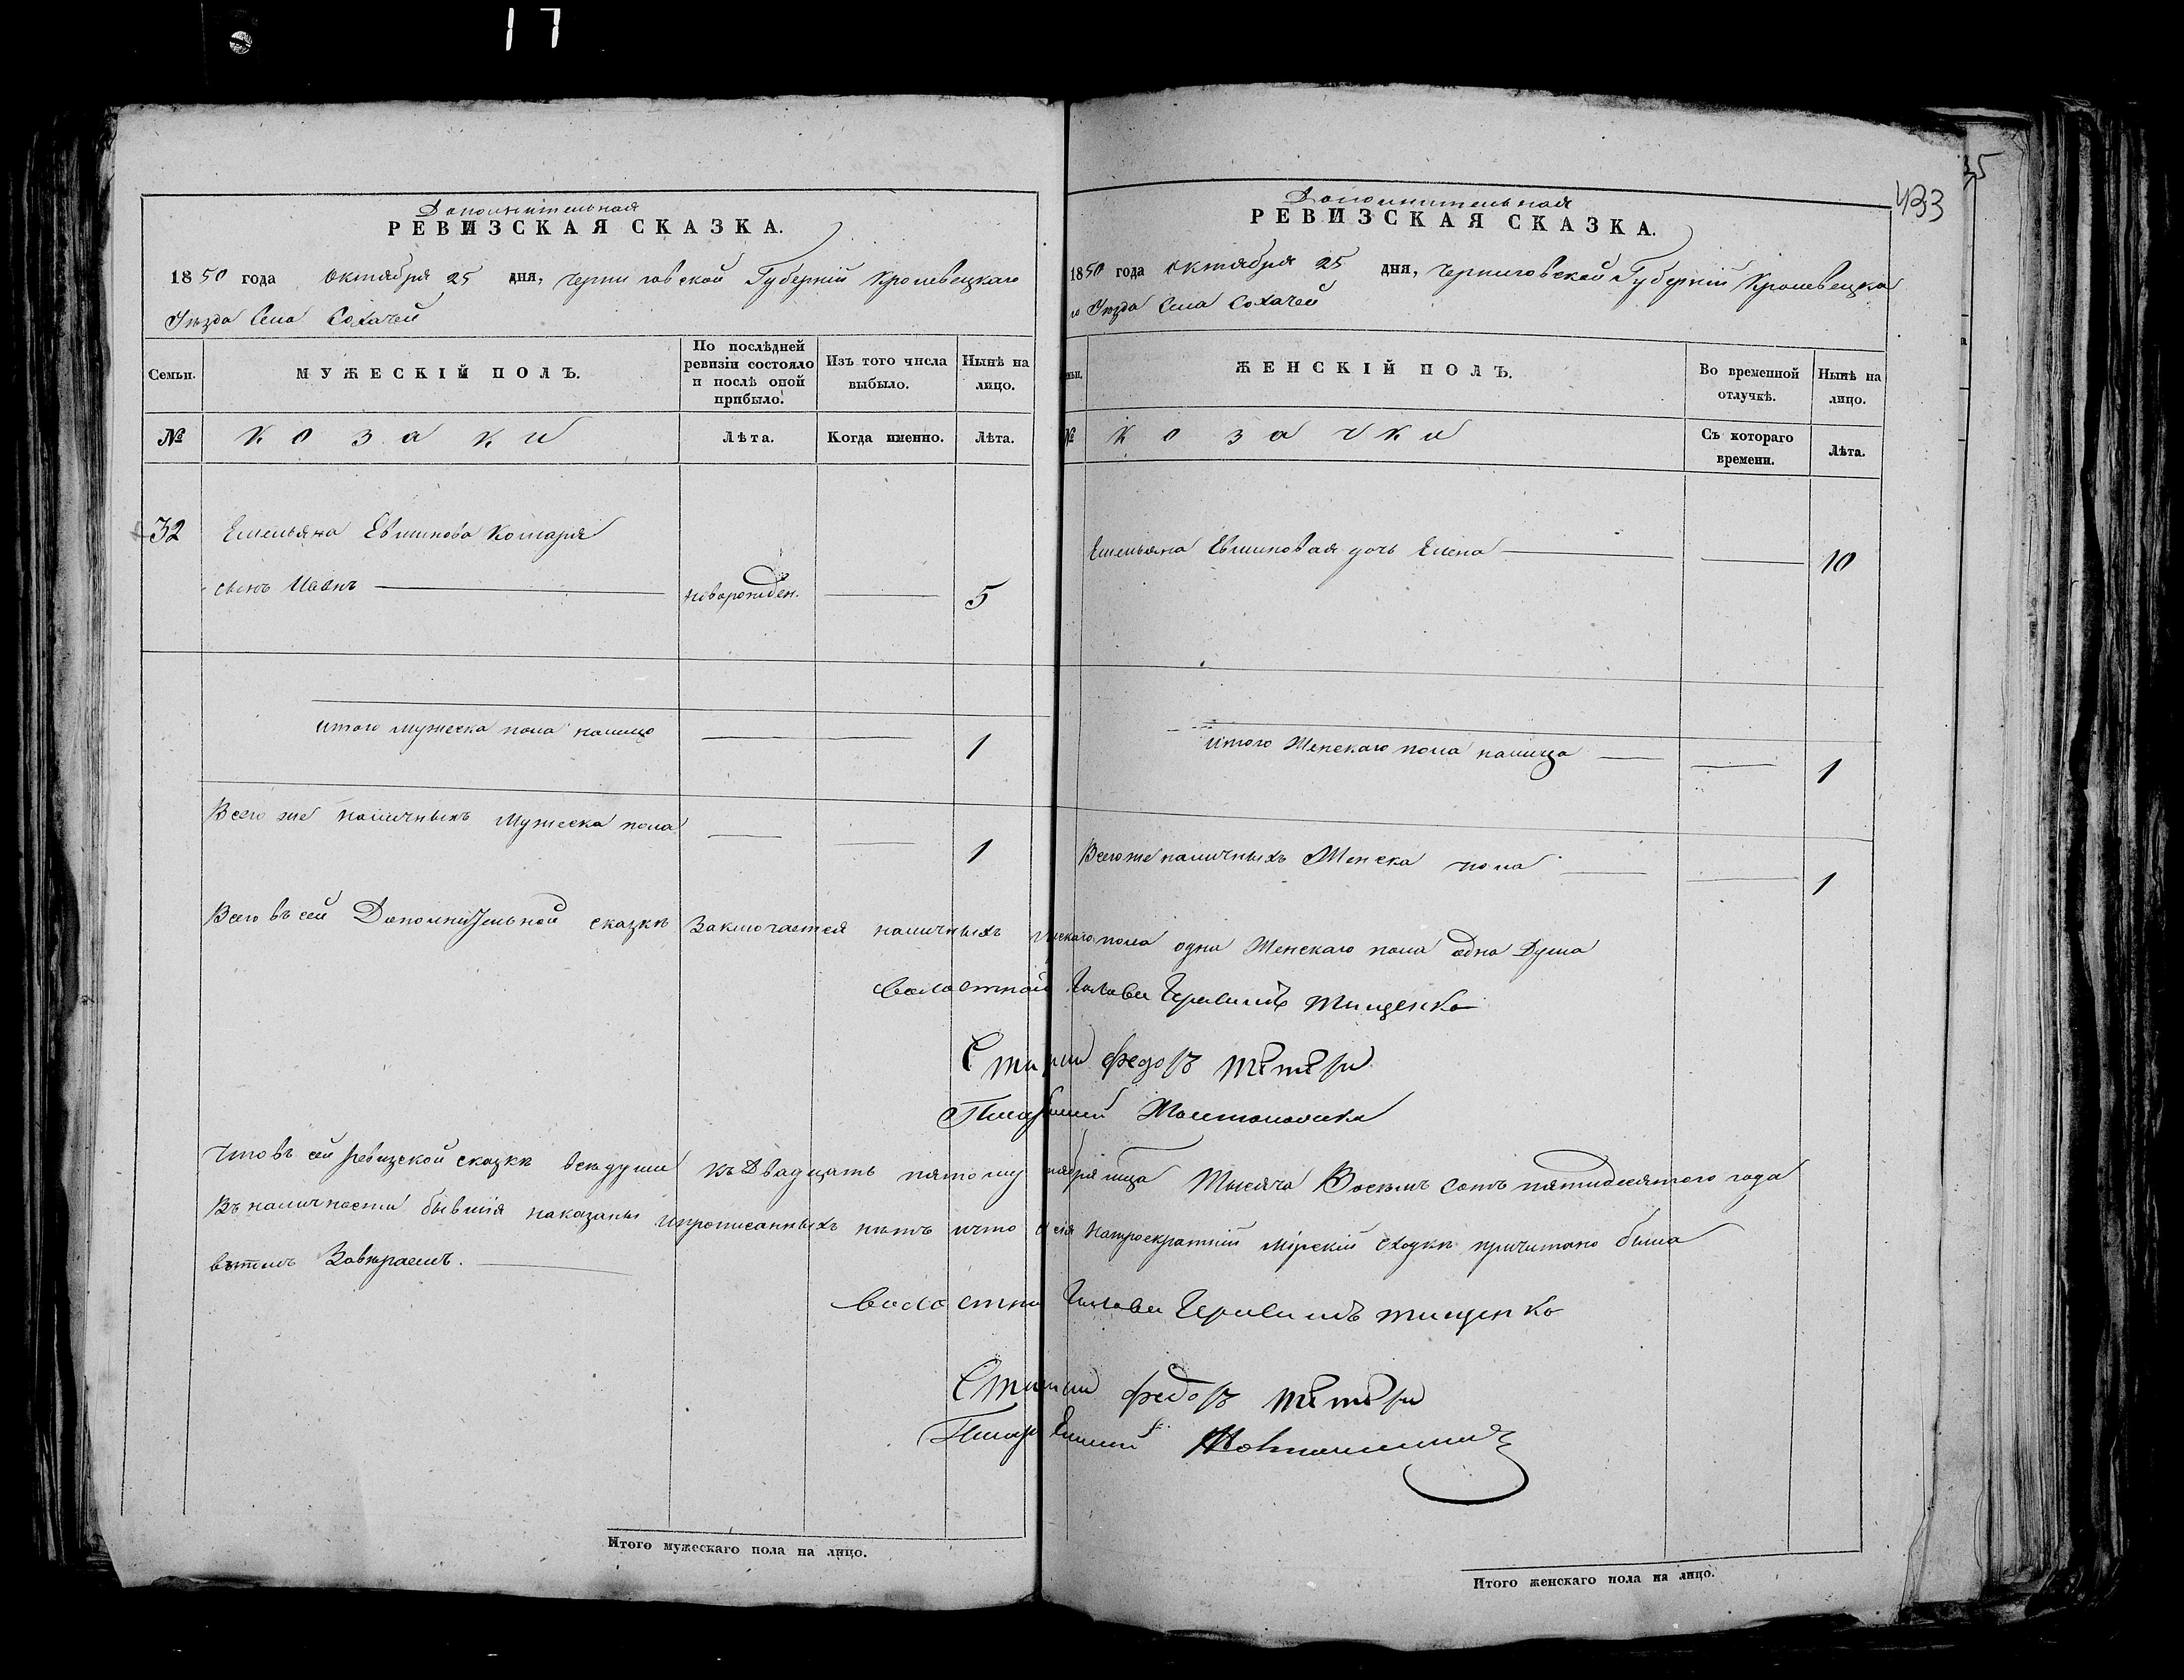 17
35
433
Дополнительная
РЕВИЗСКАЯ СКАЗКА.
1850 года октября 25 дня, Черниговской Губерніи Кролевецкаго
Уѣзда Села Сохачей
Семьи.
МУЖЕСКІЙ ПОЛЪ.
По послѣдней ревизіи состояло и послѣ оной прибыло.
Изъ того числа выбыло.
Нынѣ на лицо.
№
козаки
Лѣта.
Когда именно.
Лѣта.
32 Емельяна Евминова
сынъ Иванъ новорожден. 5
итого мужеска пола налицо 1
Всего же наличныхъ Мужеска пола 1
Дополнительная
РЕВИЗСКАЯ СКАЗКА.
1850 года октября 25 дня, Черниговской Губерніи Кролевецка
го Уѣзда Села Сохачей
ЖЕНСКІЙ ПОЛЪ.
Во временной отлучкѣ.
Нынѣ на лицо.
№
козачки
Съ котораго времени.
Лѣта.
Емельяна Евминовая дочь Елена 10
итого Женскаго пола налицо 1
Всего же наличныхъ Женска пола 1
Всего въ сей Дополнительной сказкѣ Заключается наличныхъ пола одна Женскаго пола одна Душа
Волостной Голова Тищенко
Федоръ
Что въ сей ревизской сказкѣ всѣ души къ Двадцать пятому Тысяча Восемь сотъ пятидесятого года
Въ наличности бывшія показаны и прописанныхъ нѣтъ и что сія Мірскій сходкѣ причитано была
въ томъ Завѣряемъ.
Голова Тищенко
Федоръ
Итого мужескаго пола на лицо.
Итого женскаго пола на лицо.